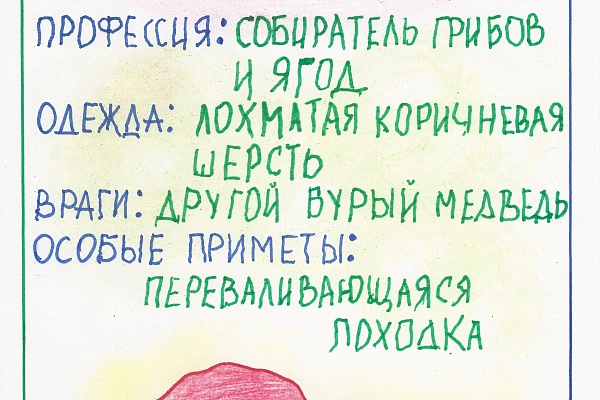 ПРОФЕССИЯ: СОБИРАТЕЛЬ ГРИБОВ
И ЯГОД
ОДЕЖДА: ЛОХМАТАЯ КОРИЧНЕВАЯ
ШЕРСТЬ
ВРАГИ: ДРУГОЙ БУРЫЙ МЕДВЕДЬ
ОСОБЫЕ ПРИМЕТЫ:
ПЕРЕВАЛИВАЮЩАЯСЯ
ПОХОДКА